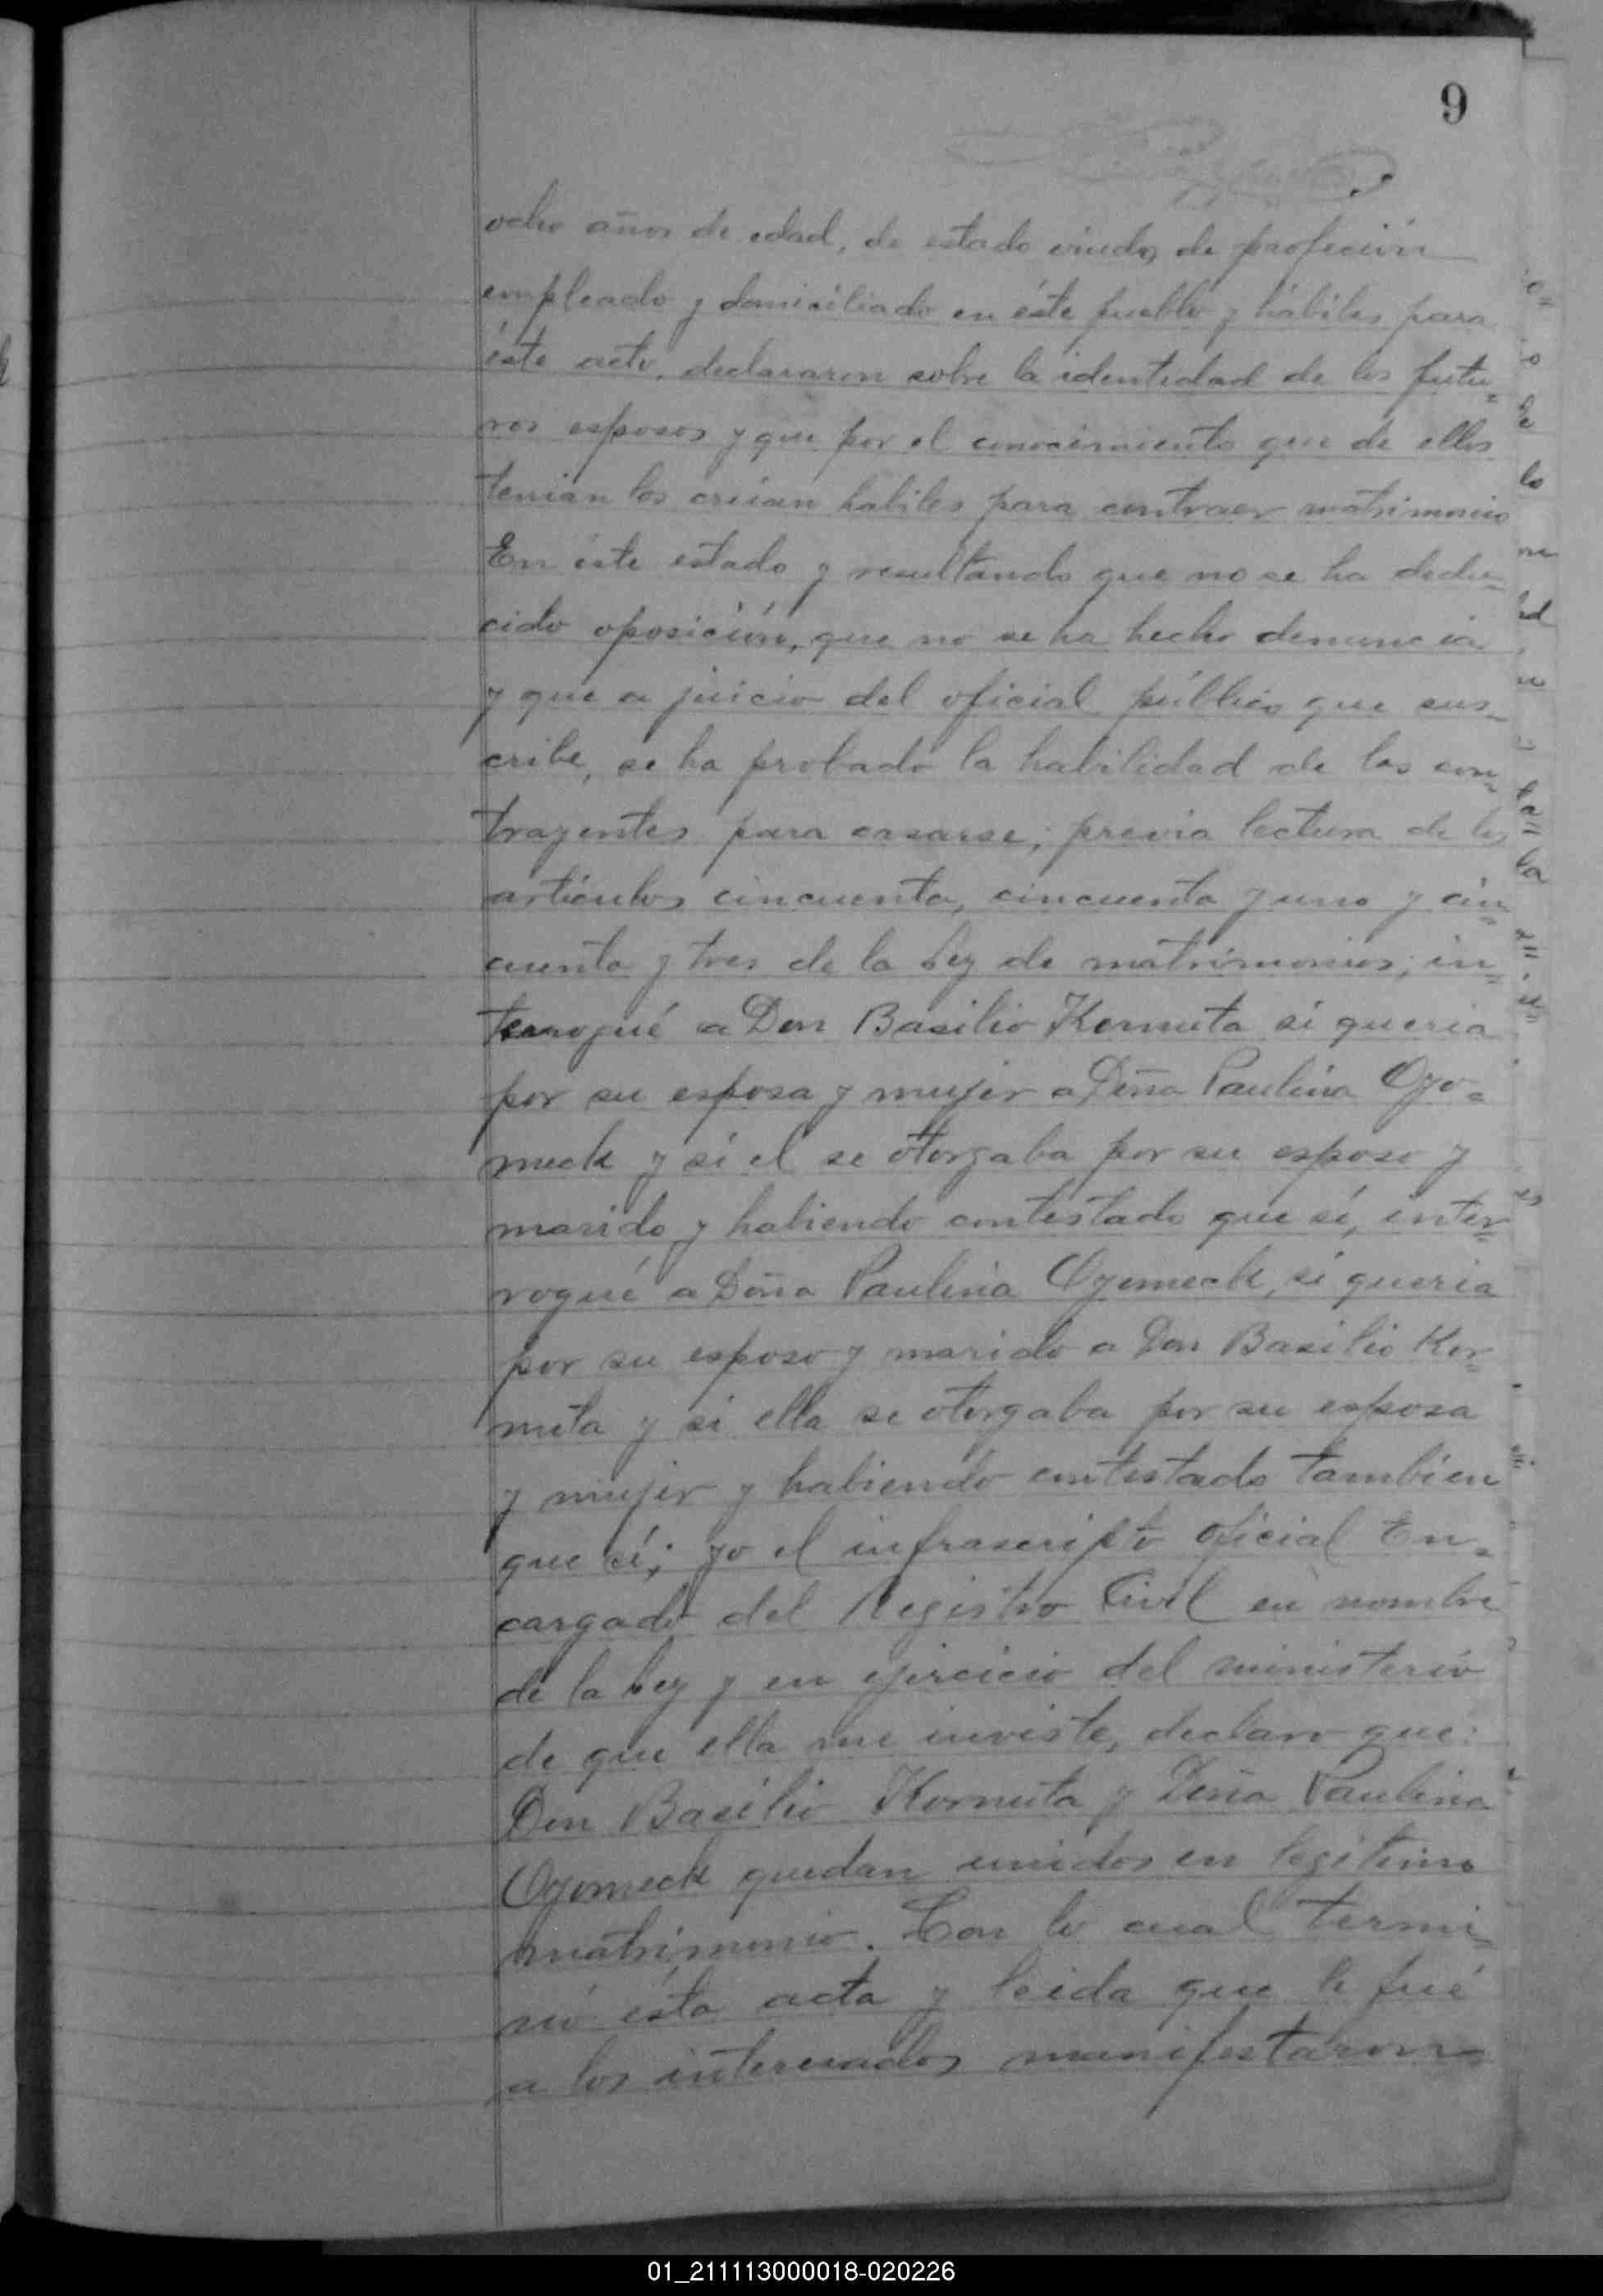 9
ocho años de edad, de estado viudo, de profeción
empleado y domiciliado en éste pueblo y hábiles para
éste acto, declararon sobre la identidad de los futu=
ros esposos y que por el conocimiento que de ellos
tenian los creian habiles para contraer matrimonio
En éste estado y resultando que no se ha dedu=
cido oposición, que no se ha hecho denuncia
y que a juicio del oficial público que sus=
cribe, se ha probado la habilidad de los con=
trayentes para casarse; previa lectura de los
artículos cincuenta, cincuenta y uno y cin=
cuenta y tres de la Ley de matrimonios; in=
terrogué a Don Basilio Kornuta si queria
por su esposa y mujer a Doña Paulina Oyo=
meck y si el se otorgaba por su esposo y
marido y habiendo contestado que sí, inter=
rogué a Doña Paulina Oyomeck, si queria
por su esposo y marido a Don Basilio Kor=
nuta y si ella se otorgaba por su esposa
y mujer y habiendo contestado tambien
que sí; yo el infrascripto oficial En=
cargado del Registro Civil en nombre
de la Ley y en ejercicio del ministerio
de que ella me inviste, declaro que:
Don Basilio Kornuta y Doña Paulina
Oyomeck quedan unidos en legitimo
matrimonio. Con lo cual termi=
nó ésta acta y leida que le fué
a los interesados manifestaron=
01_211113000018-020226